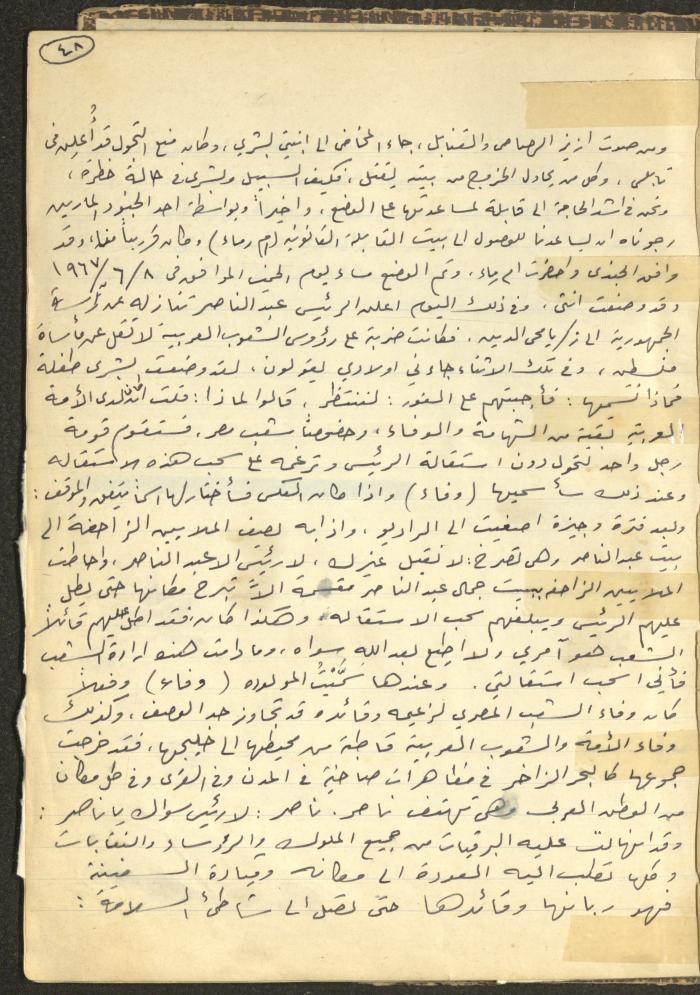 ٤٨
ومن صوت ازيز الرصاص والقنابل، جاء المخاض الى ابنتي بشرى، وكان منع التجول قد أُعلن في
نابلس، وكل من يحاول الخروج من بيته يقتل، فكيف السبيل وبشرى في حالة خطرة،
ونحن في اشد الحاجة الى قابلة لمساعدتها على الوضع، واخيراً وبواسطة احد الجنود المارين
رجوناه ان يساعدنا للوصول الى بيت القابلة القانونية (ام رجاء) وكان قريباً منا، وقد
وافق الجندي واحضرت ام رجاء، وتم الوضع مساء يوم الخميس الموافق في ٨/٦/١٩٦٧
وقد وضعت انثى، وفي ذلك اليوم اعلن الرئيس عبد الناصر تنازله عن رئاسة
الجمهورية الى زكريا محي الدين. فكانت ضربة على رؤوس الشعوب العربية لا تقل عن مأساة
فلسطين، وفي تلك الاثناء جاءني اولادي يقولون، لقد وضعت بشرى طفلة
فماذا نسميها: فأجبتهم على الفور: لننتظر، قالوا لماذا: قلت لدى الأمة
العربية بقية من الشهامة والوفاء، وخصوصاً شعب مصر، فستقوم قومة
رجل واحد لتحول دون استقالة الرئيس وترغمه على سحب هذه الاستقاله
وعند ذلك سأسميها (وفاء) واذا كان العكس فسأختار لها اسماً يتفق والموقف:
وبعد فترة وجيزة اصغيت الى الراديو، واذا به يصف الملايين الزاحفة الى
بيت عبد الناصر وهي تصرخ: لا نقبل غيرك، لا رئيس الا عبد الناصر، واحاطت
الملايين الزاحفه ببيت جمال عبد الناصر مقسمة الاّ تبرح مكانها حتى يطل
عليهم الرئيس ويبلغهم سحب الاستقاله، وهكذا كان، فقد اطل عليهم قائلاً
الشعب هو آمري ولا اطيع بعد الله سواه، وما دامت هذه ارادة الشعب
فأني اسحب استقالتي. وعندها سمَّيْتُ المولوده (وفاء) وفعلاً
كان وفاء الشعب المصري لزعيمه وقائده قد تجاوز حد الوصف، وكذلك
وفاء الأمة والشعوب العربية قاطبة من محيطها الى خليجها، فقد خرجت
جموعها كالبحر الزاخر في مظاهرات صاخبة في المدن وفي القرى وفي كل مكان
من الوطن العربي وهي تهتف ناصر. ناصر: لا رئيس سواك يا ناصر:
وقد انهالت عليه البرقيات من جميع الملوك والرؤساء والنقابات
وكلها تطلب اليه العودة الى مكانه وقيادة السفينة
فهو ربانها وقائدها حتى تصل الى شاطئ السلامة: